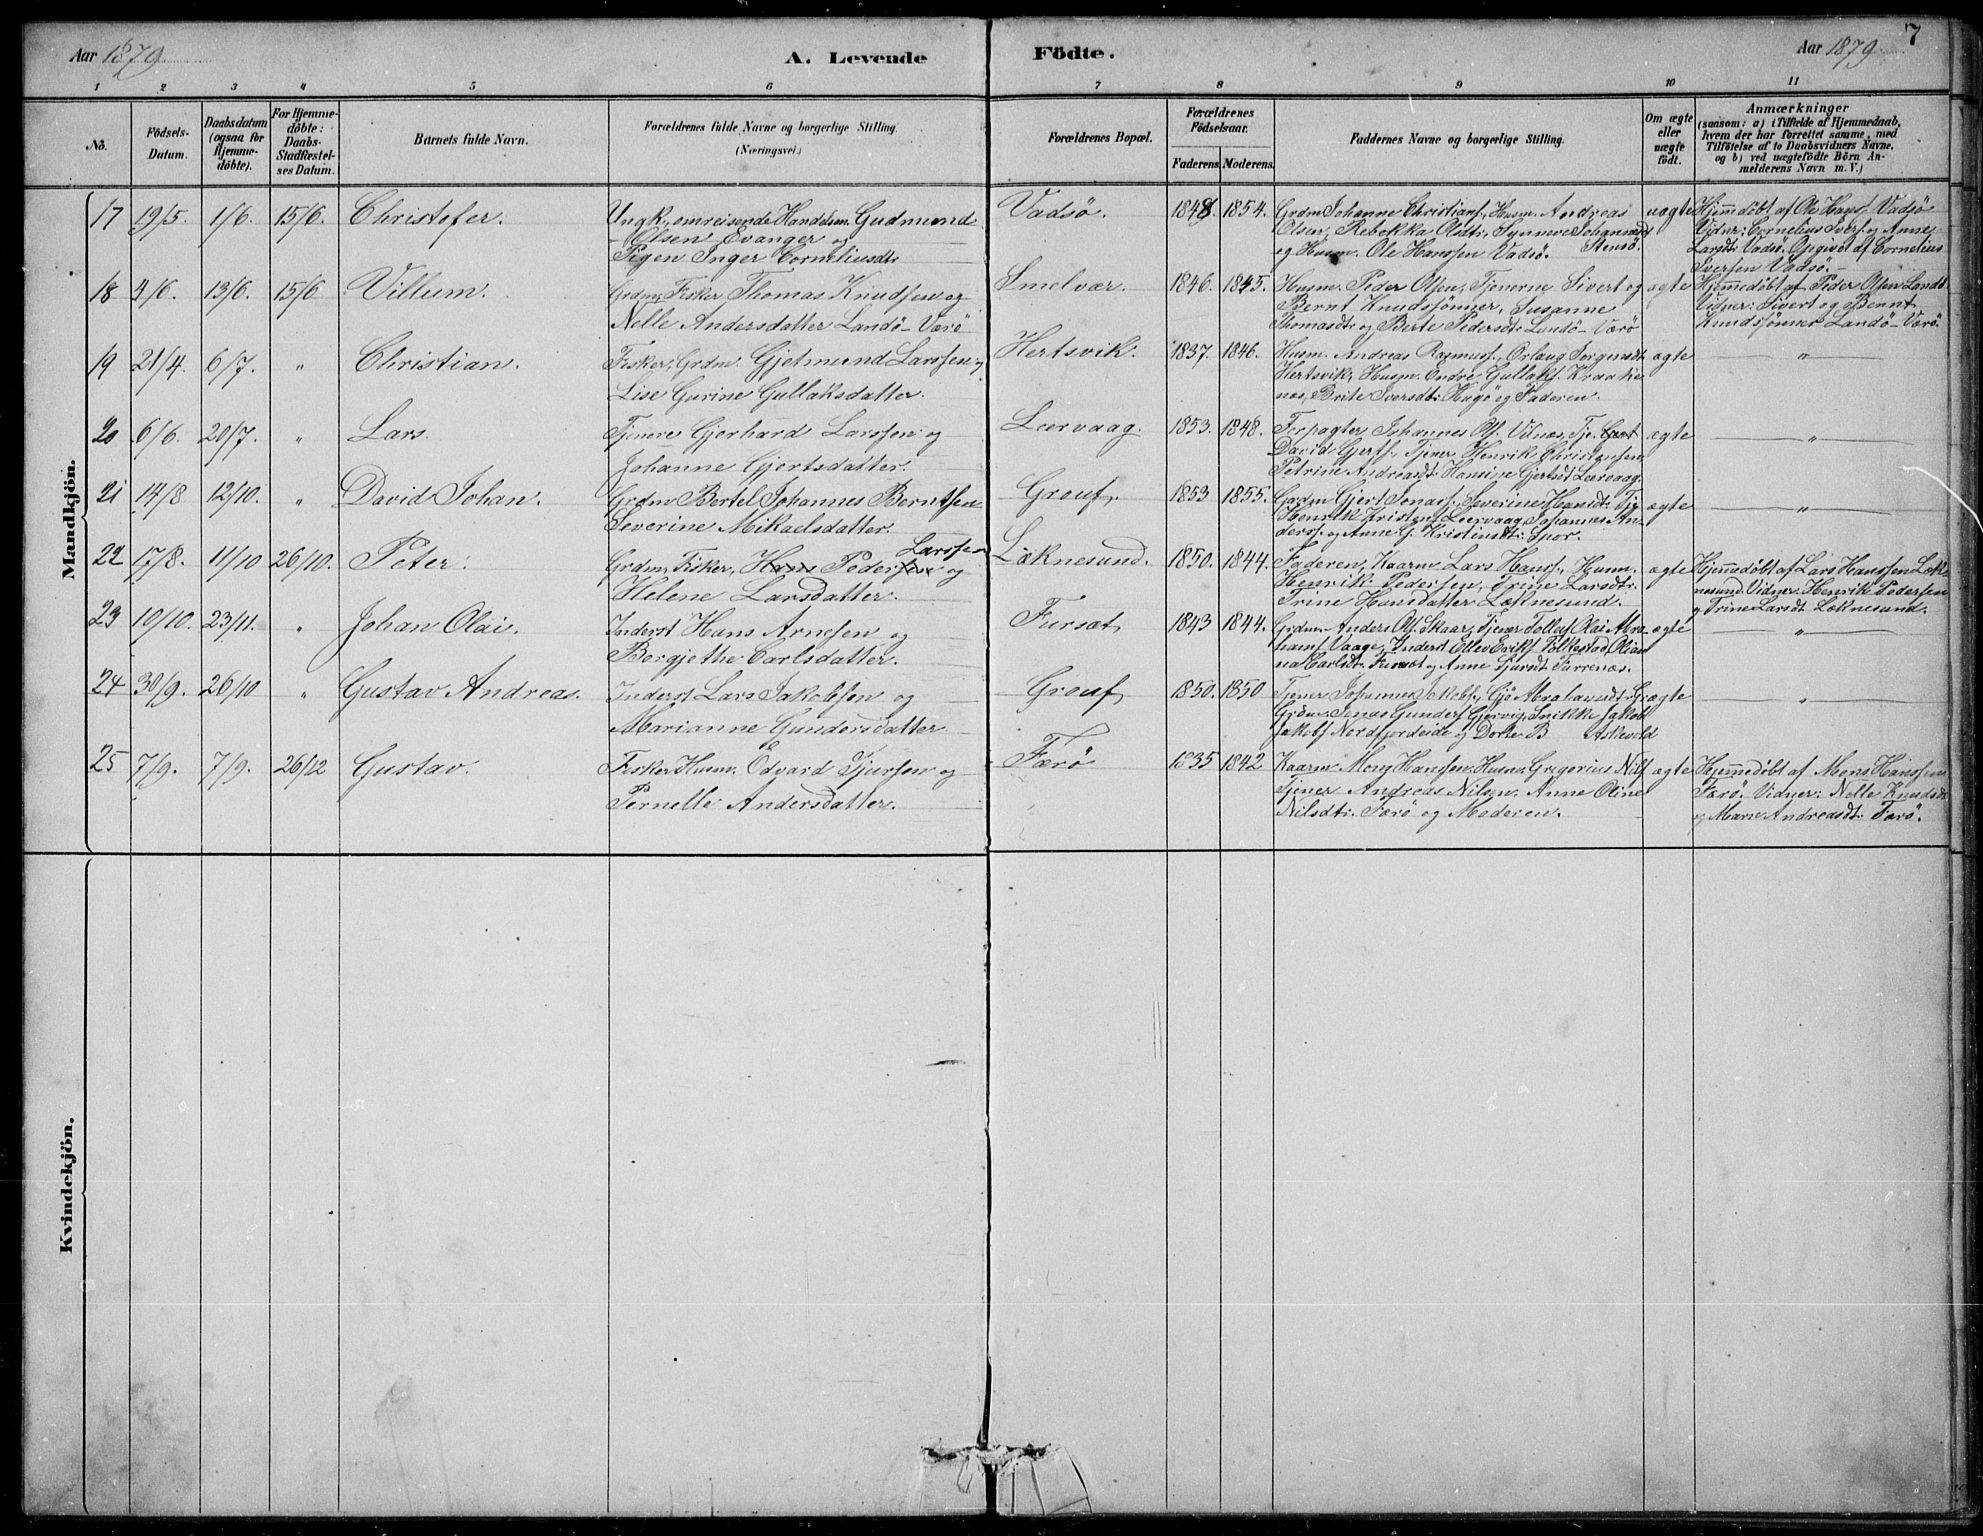 Aar 1879
A. Levende
Födte.
Aar 1879
7
1 2 3 4 5 6 7 8 9 10 11
No.
Födsels-
Datum.
Daabsdatum
(ogsaa for
Hjemme-
döbte).
For Hjemme-
döbte:
Daabs-
Stadfæstel-
ses Datum.
Barnets fulde Navn.
Forældrenes fulde Navne og borgerlige Stilling
(Næringsvei.)
Forældrenes Bopæl.
Forældrenes
Födselsaar.
Faderens. Moderens.
Faddernes Navne og borgerlige Stilling.
Om ægte
eller
uægte
födt.
Anmærkninger
(saasom: a) i Tilfælde af Hjemmedaab,
hvem der har forrettet samme, med
Tilföielse af to Daabsvidners Navne,
og b) ved uægtefödte Börn An-
melderens Navn m. V.)
Mandkjön.
17 19/5. 1/6. 15/6. Christofer.
Ungk., omreisende Handelsm. Gudmund
Olsen Evanger og
Pigen Inger Corneliusdtr
Vadsö. 1848. 1854.
Grdm Johanne Christians., Husm. Andreas
Olsen, Rebekka Olsdtr, Synneve Johannesdt
Stensö.
og Husm. Ole Hanssen Vadsö.
uægte
Hjemmedöbt af Ole Hans. Vadsö
Vidner: Cornelius Ivers. og Anne
Larsdtr Vadsö. Opgivet af Cornelius
Iversen Vadsö.
18 4/6. 13/6. 15/6 Villum.
Grdm, Fisker Thomas Knudsen og
Nelle Andersdatter Landö-Værö
Smelvær. 1846. 1845.
Husm. Peder Olsen, Tjenerne Sivert og
Bernt Knudssönner, Susanne
Thomasdtr og Berte Pedersdtr Landö-Værö
ægte
Hjemmedöbt af Peder Olsen Landö
Vidner: Sivert og Bernt
Knudssönner Landö-Værö.
19 21/4. 6/7. " Christian.
Fisker, Grdm. Gjetmund Larssen og
Lise Gurine Gullaksdatter.
Hertsvik. 1837. 1846.
Husm. Andreas Rasmuss., Orlaug Jorgensdt
Hertsvik, Husm. Endre Gullaks. Kraake
næs, Brite Iversdtr Hagö og Faderen.
ægte "
20 6/6. 20/7. " Lars.
Tjener Gjerhard Larssen og
Johanne Gjertsdatter.
Leervaag. 1853. 1848.
Forpagter Johannes Ols. Vilnæs, Tje. Gjert
David Gjerts., Tjener Henrik Christensen
Petrine Andreasdt. Hansine Gjertsdt Leervaag.
ægte "
21 14/8 12/10. " David Johan.
Grdm Bertel Johannes Berntsen
Severine Mikaelsdatter.
Grouf. 1853 1855.
Grdm Gjert Jonas., Severine Hansdt. Tje
Henrik Kristens. Leervaag, Johannes An-
derss. og Anne G. Kristensdt. Spor.
ægte "
22 17/8. 11/10 26/10. Peter.
Larssen
Grdm, Fisker, Hans Pedersen og
Helene Larsdatter.
Löknesund. 1850. 1844.
Faderen, Kaarm Lars Hans., Husm.
Henrik Pedersen, Trine Larsdtr.
Trine Hansdatter Löknesund.
ægte
Hjemmedöbt af Lars Hanssen Lök-
nesund. Vidner: Henrik Pedersen
og Trine Larsdt Löknesund.
23 10/10. 23/11. " Johan Olai.
Inderst Hans Arnesen og
Borgjethe Carlsdatter.
Fursæt. 1843 1844.
Grdm. Anders Ols. Skaar, Tjener Tollef Olai Abra-
hams. Vaage, Inderst Ellev Eriks. Folkestad, Olian
na Carlsdt. Fursæt og Anne Sjursdt. Furrenæs.
ægte "
24 30/9. 26/10 " Gustav Andreas.
Inderst Lars Jakobsen og
Marianne Gundersdatter
Grouf, 1850. 1850
Tjener Johannes Jakobs.,
Grdm. Jonas Gunders. Gjervig, Snikk. Jakob
Jakobs. Nordfjordeide og Dorte B Askevold
ægte "
25 7/9. 7/9. 26/12 Gustav.
Fisker Husm. Edvard Sjursen og
Pernelle Andersdatter.
Færö 1835 1842
Kaarm Mons Hanssen, Husm. Gregorius Nils.
Tjener Andreas Nilsen. Anne Oline
Nilsdtr Færö og Moderen.
ægte
Hjemmedöbt af Mons Hanssen
Færö. Vidner: Nelle Knudsdt
og Marie Andreasdt. Færö.
Kvindekjön.